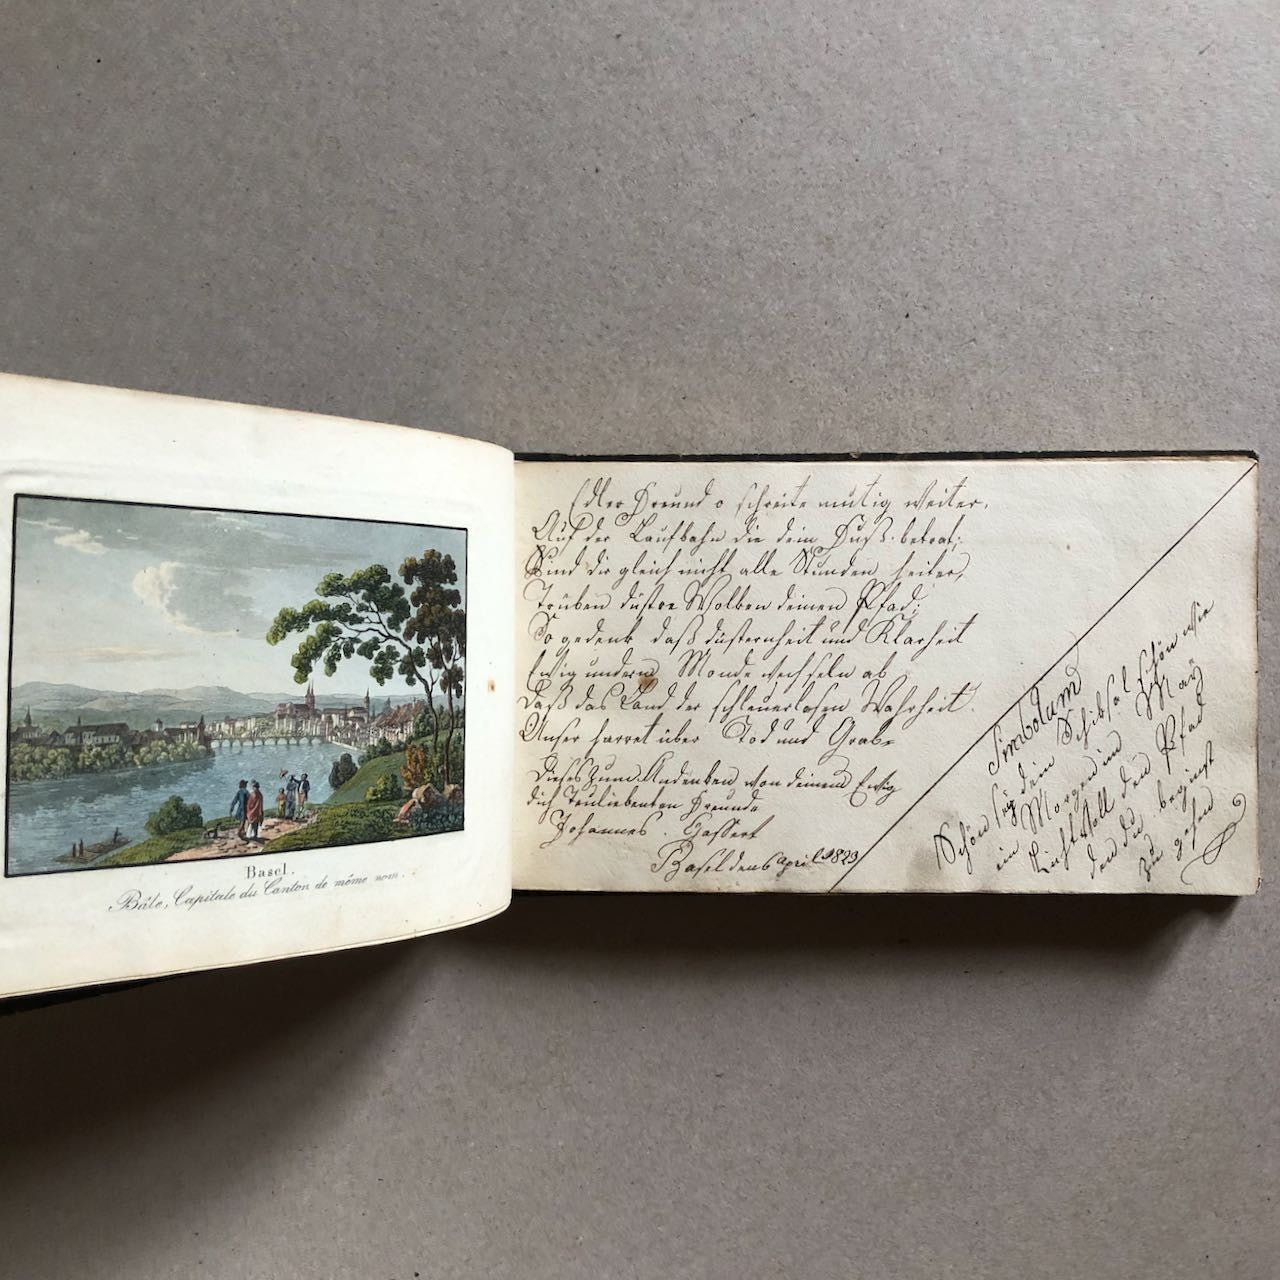 Basel.
Bâle, Capitale du Canton de même nom.
Edler Freund o schreite mutig weiter,
Auf der Laufbahn die dein Fuß betrat;
Sind dir gleich nicht alle Stunden heiter,
Trüben düstre Wolken deinen Pfad;
So gedenk daß düsternheit und Klarheit
Ewig unterm Monde wechseln ab
Daß das Land der schleuerlosen Wahrheit
Unser harret über Tod und Grab
Dieses zum Andenken von deinem Ewig
dich Treuliebenden Freunde
Johannes. Gassert
Basel den 6 april 1823
Simbolum
Schön sey dein Schiksal schön wie
ein Morgen im May
Licht den Pfad
den du beginst
zu gehen